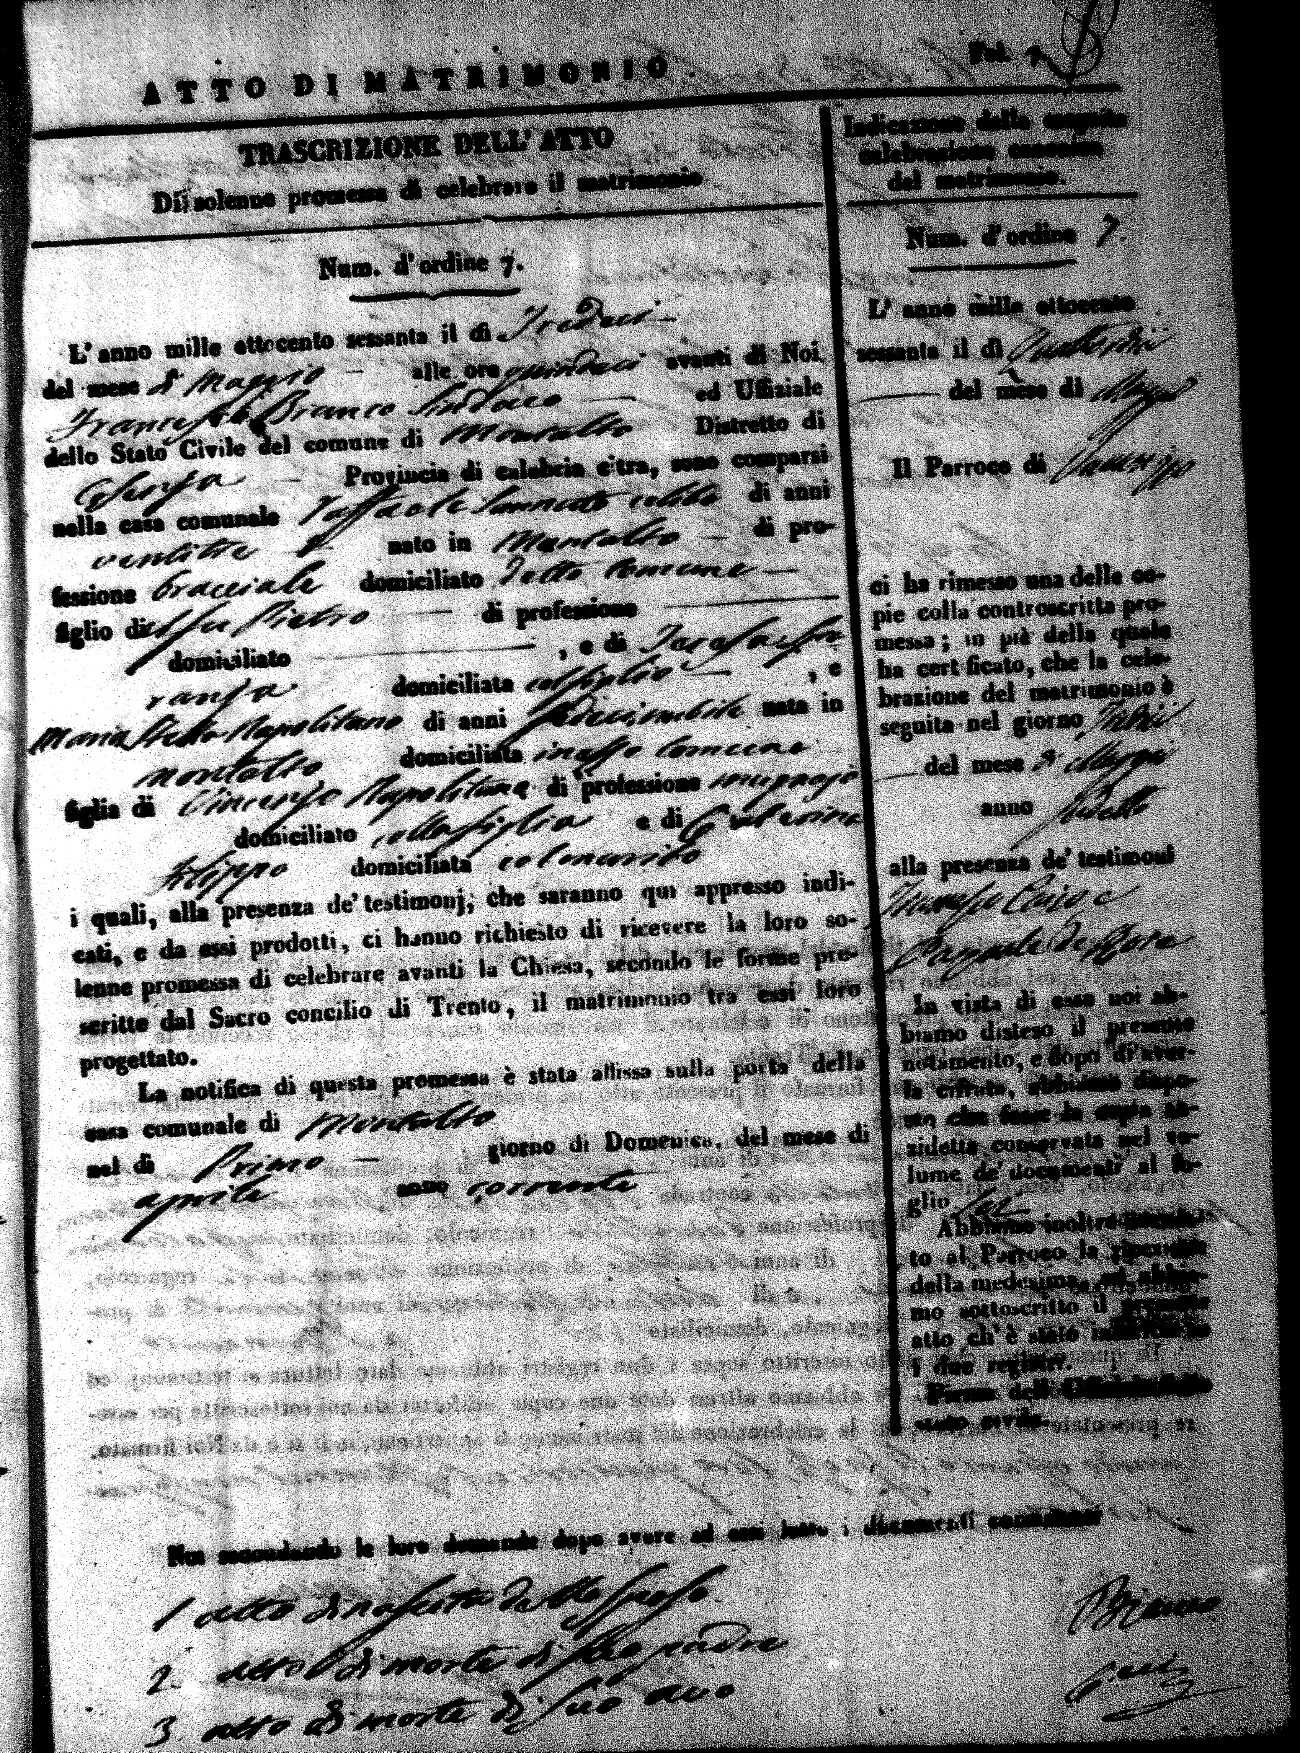 Fol. 7
ATTO DI MATRIMONIO.
TRASCRIZIONE DELL' ATTO
Di solenne promessa di celebrare il matrimonio
Num. d'ordine 7.
L'anno mille ottocento sessanta il dì Tredici
del mese di Maggio alle ore quindici avanti di Noi
Francesco Bianco Sindaco ed Uffiziale
dello Stato Civile del comune di Montalto Distretto di
Cosenza Provincia di calabria citra, sono comparsi
nella casa comunale Raffaele celibe di anni
ventitre nato in Montalto di pro-
fessione bracciale domiciliato detto Comune
figlio di fu Pietro di professione
domiciliato , e di Teresa
domiciliata col figlio , e
Maria Napolitano di anni nata in
Montalto domiciliata in esso Comune
figlia di Vincenzo Napolitano di professione mugnajo
domiciliato colla figlia e di Caterina
Filippo domiciliata col marito
i quali, alla presenza de' testimonj, che saranno qui appresso indi-
cati, e da essi prodotti, ci hanno richiesto di ricevere la loro so-
lenne promessa di celebrare avanti la Chiesa, secondo le forme pre-
scritte dal Sacro concilio di Trento, il matrimonio tra essi loro
progettato.
La notifica di questa promessa è stata affissa sulla porta della
casa comunale di Montalto
nel dì Primo giorno di Domenica, del mese di
aprile anno corrente
Noi secondando le loro domande dopo avere ad essi letto i documenti
1 atto di nascita dello sposo
2. atto di morte di suo padre
3 atto di morte di suo avo
Indicazione della seguita
celebrazione canonica
del matrimonio.
Num. d'ordine 7.
L' anno mille ottocento
sessanta il dì
del mese di Maggio
Il Parroco di
ci ha rimesso una delle co-
pie colla controscritta pro-
messa; in piè della quale
ha certificato, che la cele-
brazione del matrimonio è
seguita nel giorno Tredici
del mese di Maggio
anno sudetto
alla presenza de' testimoni
Pasquale de
In vista di essa noi ab-
biamo disteso il presente
notamento, e dopo di aver-
la cifrata, abbiamo dispo-
sto che fosse la copia an-
zidetta conservata nel vo-
lume de' documenti al fo-
glio
Abbiamo inoltre
to al Parroco la ricevuta
della medesima, ed abbia-
mo sottoscritto il presente
atto ch' è stato
i due registri.
Firma dell' Uffiziale dello
stato civile.
Bianco